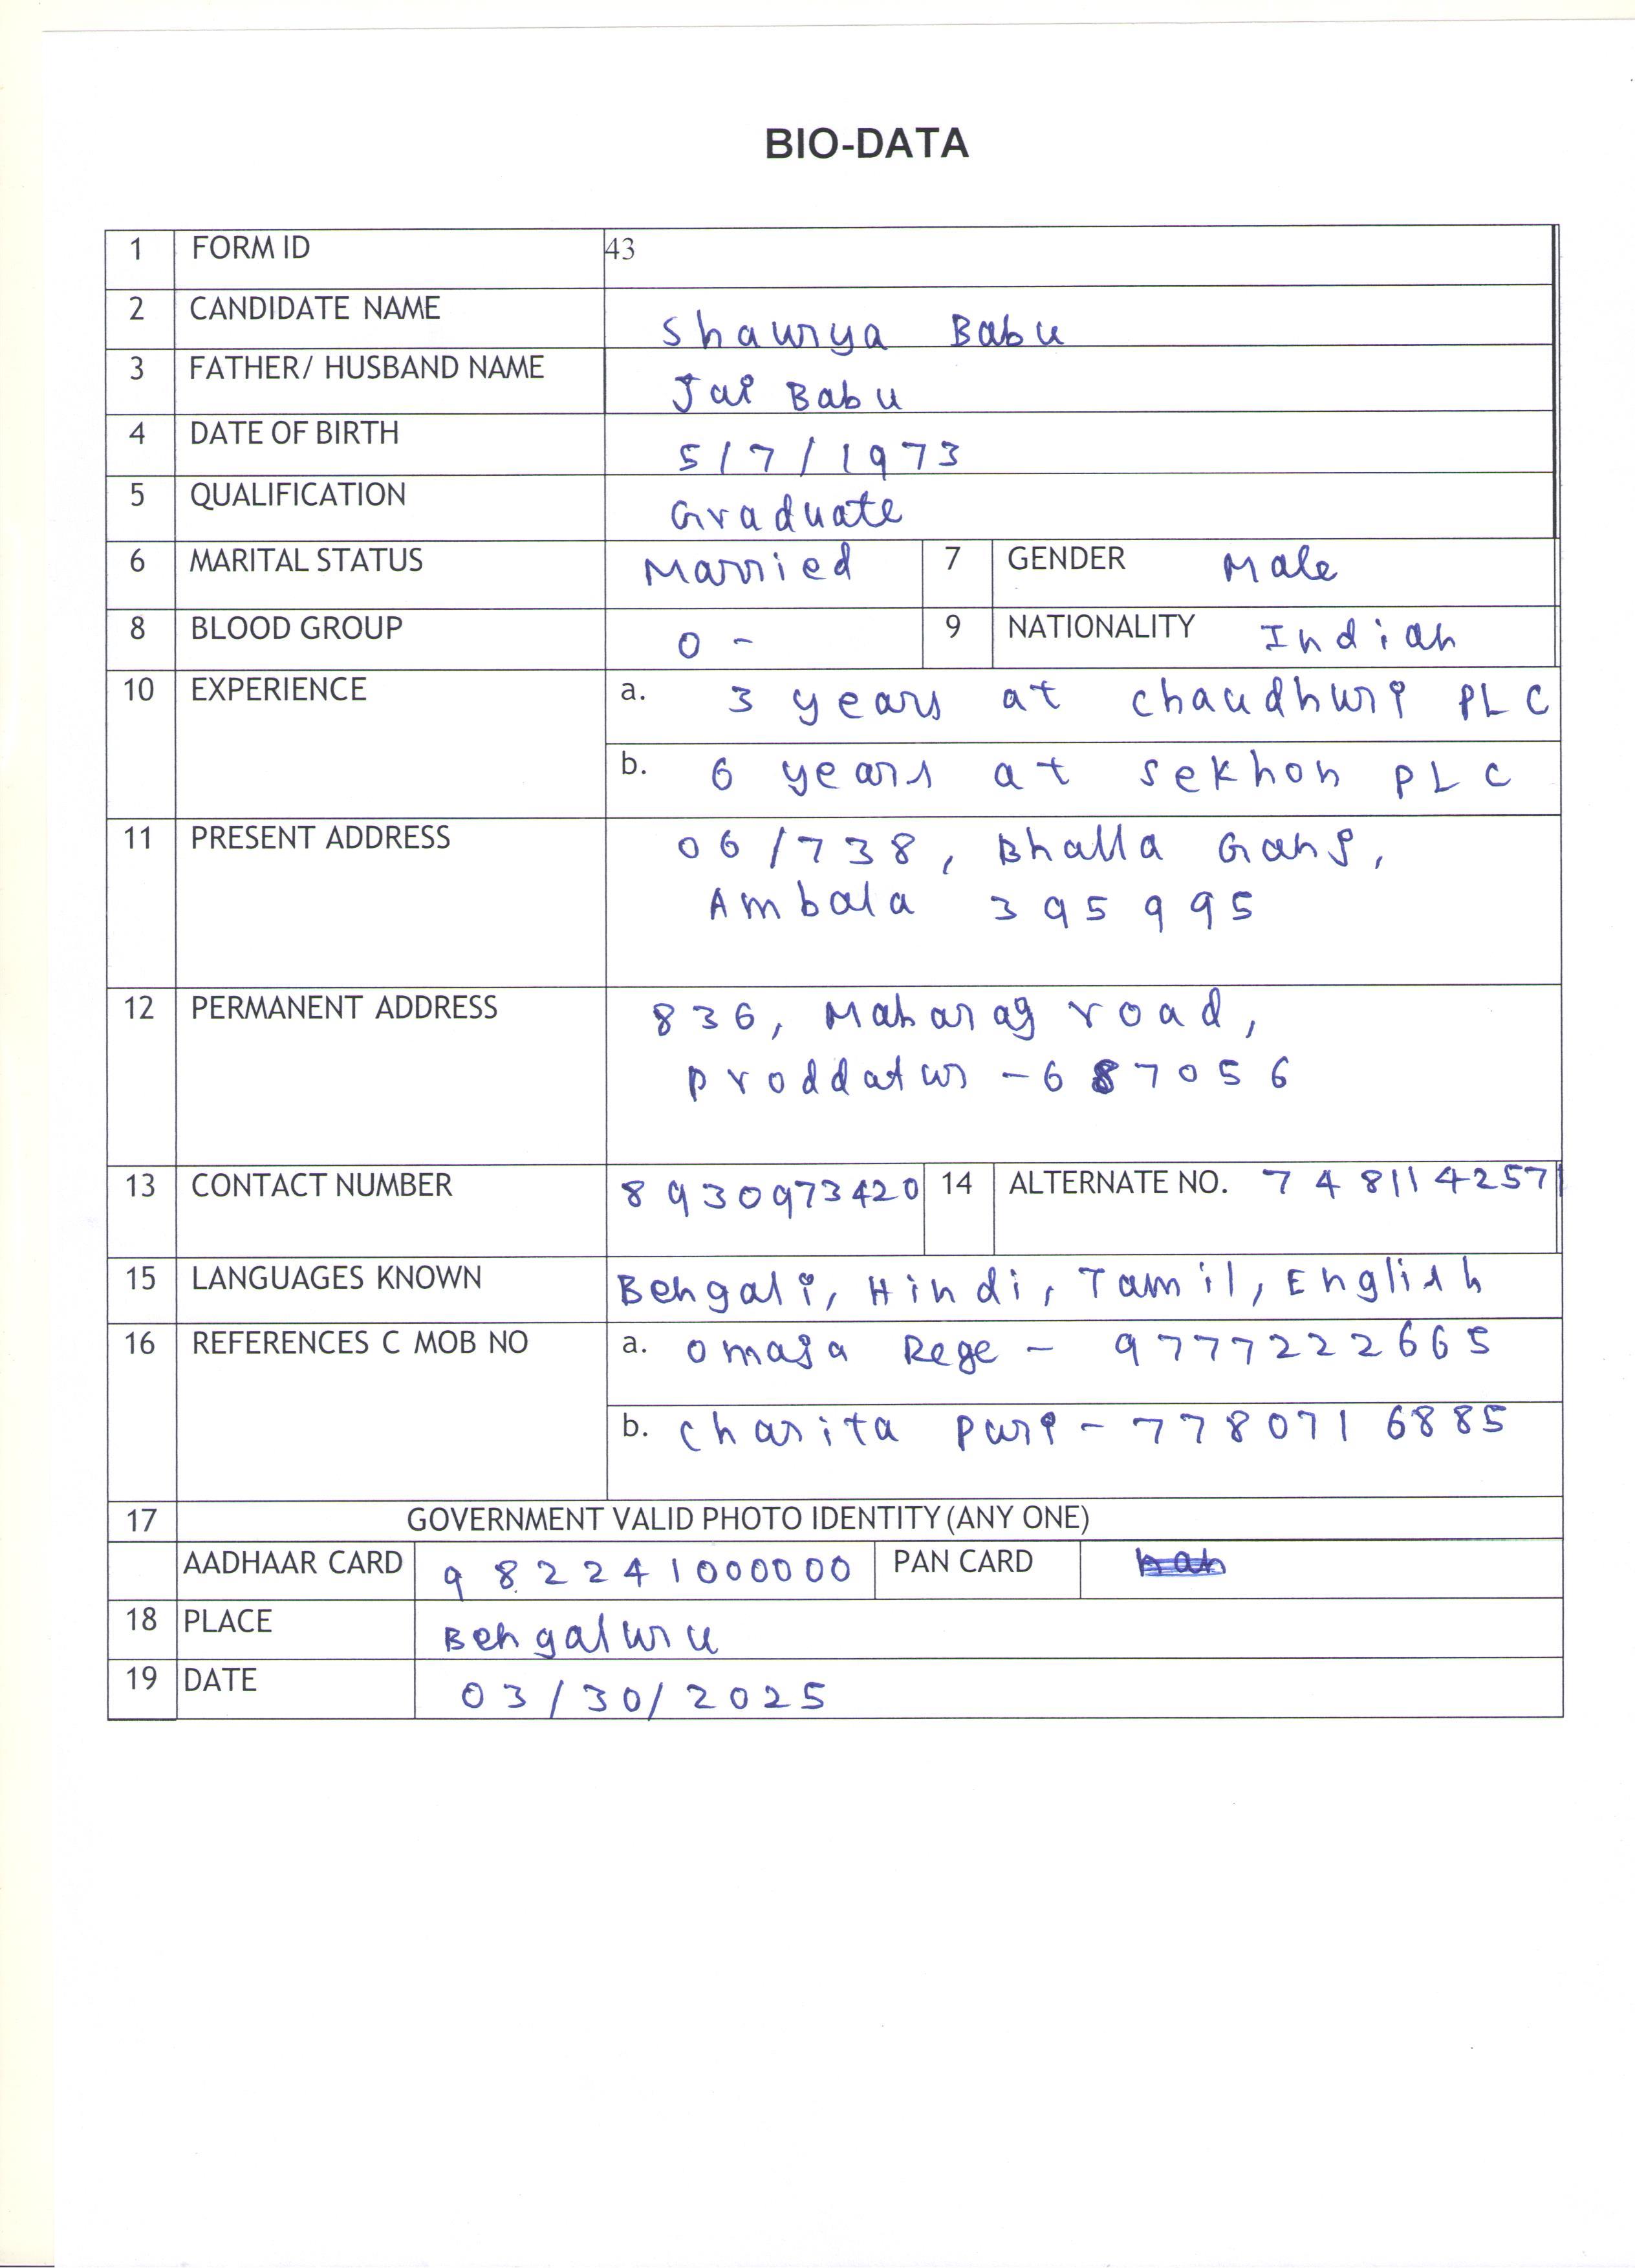 BIO-DATA
1 FORM ID 43
2 CANDIDATE NAME Shaurya Babu
3 FATHER/ HUSBAND NAME Jai Babu
4 DATE OF BIRTH 5/7/1973
5 QUALIFICATION Graduate
6 MARITAL STATUS Married 7 GENDER Male
8 BLOOD GROUP O - 9 NATIONALITY Indian
10 EXPERIENCE a. 3 years at chaudhuri PLC
b. 6 years at sekhon PLC
11 PRESENT ADDRESS 06/738, Bhalla Ganj,
Ambala 395995
12 PERMANENT ADDRESS 836, Maharaj road,
Proddatur - 687056
13 CONTACT NUMBER 8930973420 14 ALTERNATE NO. 7481142571
15 LANGUAGES KNOWN Bengali, Hindi, Tamil, English
16 REFERENCES C MOB NO a. Omaja Rege - 9777222665
b. Charita Puri - 7780716885
17 GOVERNMENT VALID PHOTO IDENTITY (ANY ONE)
AADHAAR CARD 982241000000 PAN CARD
18 PLACE Bengaluru
19 DATE 03/30/2025